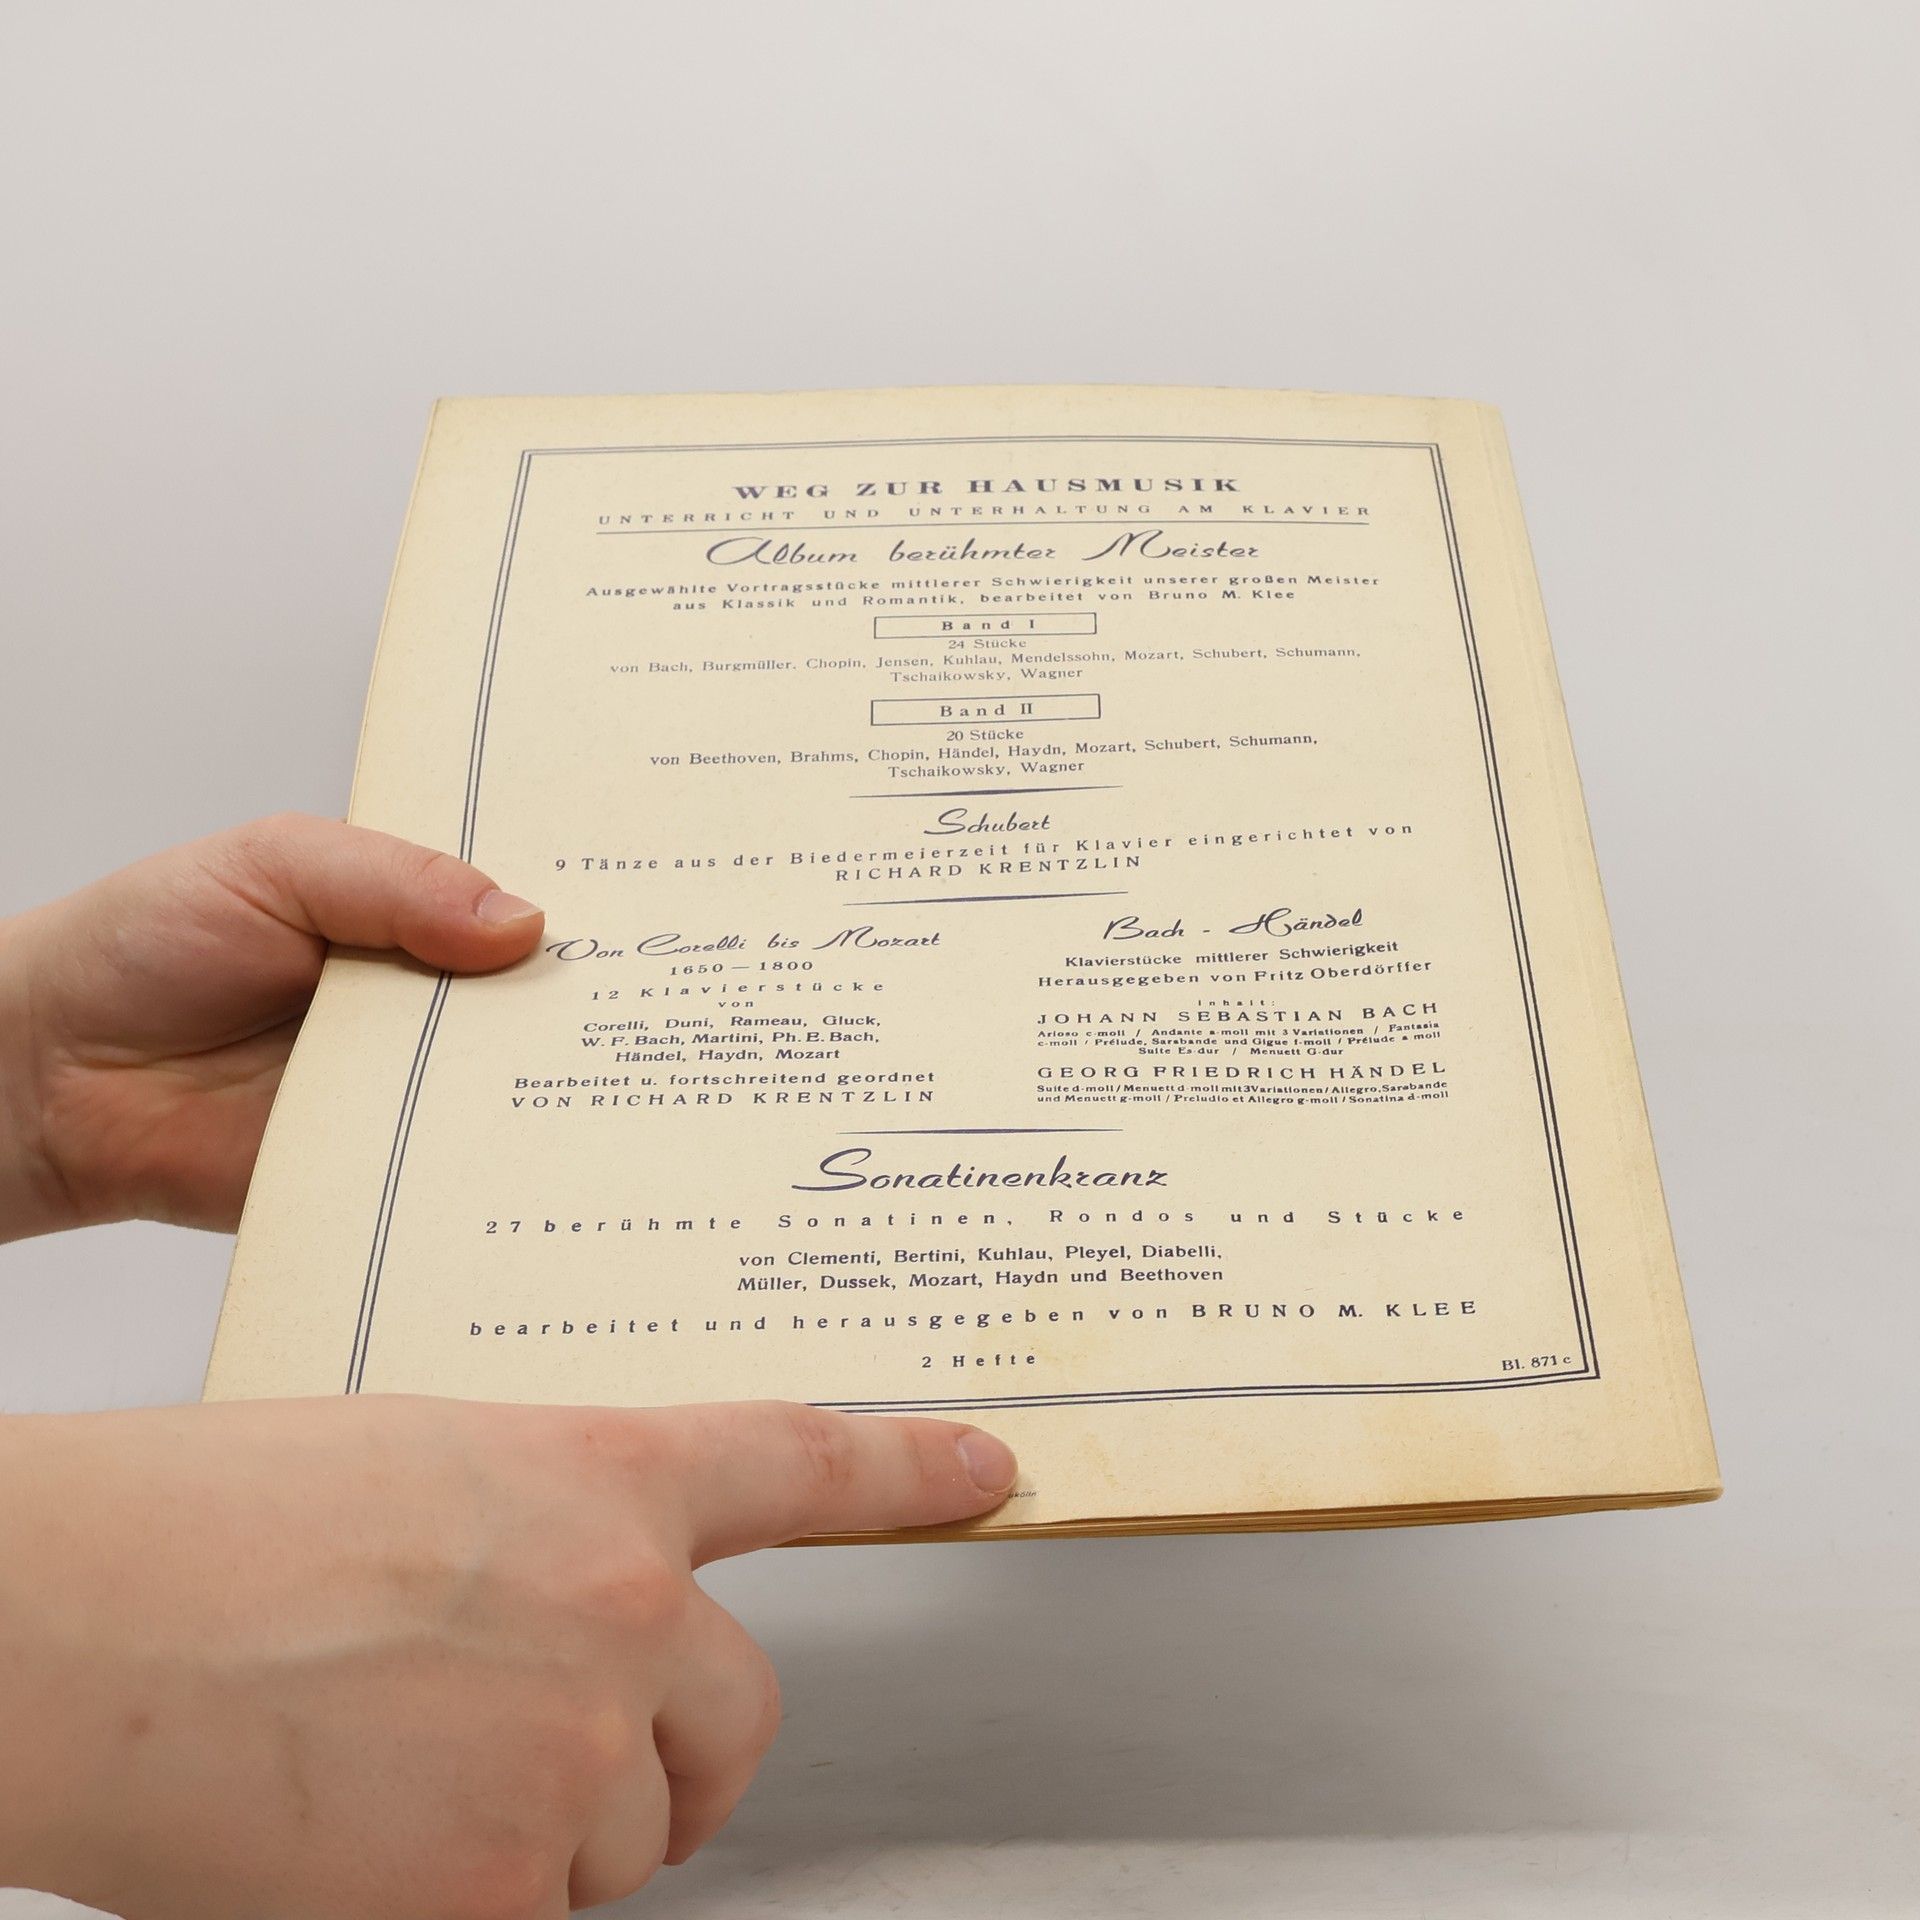 WEG ZUR HAUSMUSIK
UNTERRICHT UND UNTERHALTUNG AM KLAVIER
Album berühmter Meister
Ausgewählte Vortragsstücke mittlerer Schwierigkeit unserer großen Meister
aus Klassik und Romantik, bearbeitet von Bruno M. Klee
Band I
24 Stücke
von Bach, Burgmüller. Chopin, Jensen, Kuhlau, Mendelssohn, Mozart, Schubert, Schumann,
Tschaikowsky, Wagner
Band II
20 Stücke
von Beethoven, Brahms, Chopin, Händel, Haydn, Mozart, Schubert, Schumann,
Tschaikowsky, Wagner
Schubert
9 Tänze aus der Biedermeierzeit für Klavier eingerichtet von
RICHARD KRENTZLIN
Von Corelli bis Mozart
1650 — 1800
12 Klavierstücke
von
Corelli, Duni, Rameau, Gluck,
W. F. Bach, Martini, Ph. E. Bach,
Händel, Haydn, Mozart
Bearbeitet u. fortschreitend geordnet
VON RICHARD KRENTZLIN
Bach - Händel
Klavierstücke mittlerer Schwierigkeit
Herausgegeben von Fritz Oberdörffer
Inhalt:
JOHANN SEBASTIAN BACH
Arioso c-moll / Andante a-moll mit 3 Variationen / Fantasia
c-moll / Prélude, Sarabande und Gigue f-moll / Prélude a moll
Suite Es-dur / Menuett G-dur
GEORG FRIEDRICH HÄNDEL
Suite d-moll / Menuett d-moll mit 3 Variationen / Allegro, Sarabande
und Menuett g-moll / Preludio et Allegro g-moll / Sonatina d-moll
Sonatinenkranz
27 berühmte Sonatinen, Rondos und Stücke
von Clementi, Bertini, Kuhlau, Pleyel, Diabelli,
Müller, Dussek, Mozart, Haydn und Beethoven
bearbeitet und herausgegeben von BRUNO M. KLEE
2 Hefte
Bl. 871 c